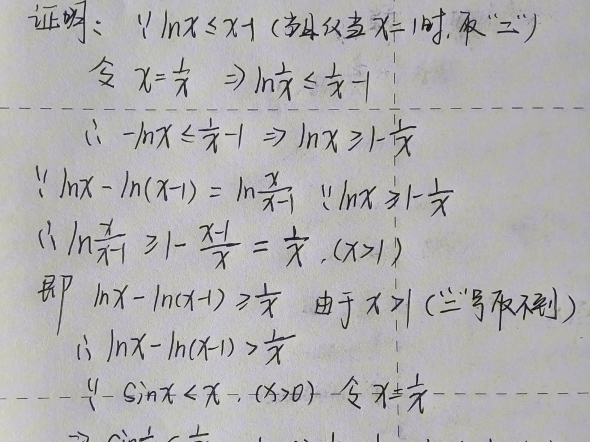 证明：∵ lnx ≤ x-1 (当且仅当x=1时,取"=")
令 x=1/x ⇒ ln1/x ≤ 1/x -1
∴ -lnx ≤ 1/x -1 ⇒ lnx ≥ 1-1/x
∵ lnx - ln(x-1) = ln x/(x-1) ∵ lnx ≥ 1-1/x
∴ ln x/(x-1) ≥ 1- (x-1)/x = 1/x .(x>1)
即 lnx-ln(x-1) ≥ 1/x 由于 x>1 ("="号取不到)
∴ lnx-ln(x-1) > 1/x
∵ sinx < x .(x>0) 令 x=1/x